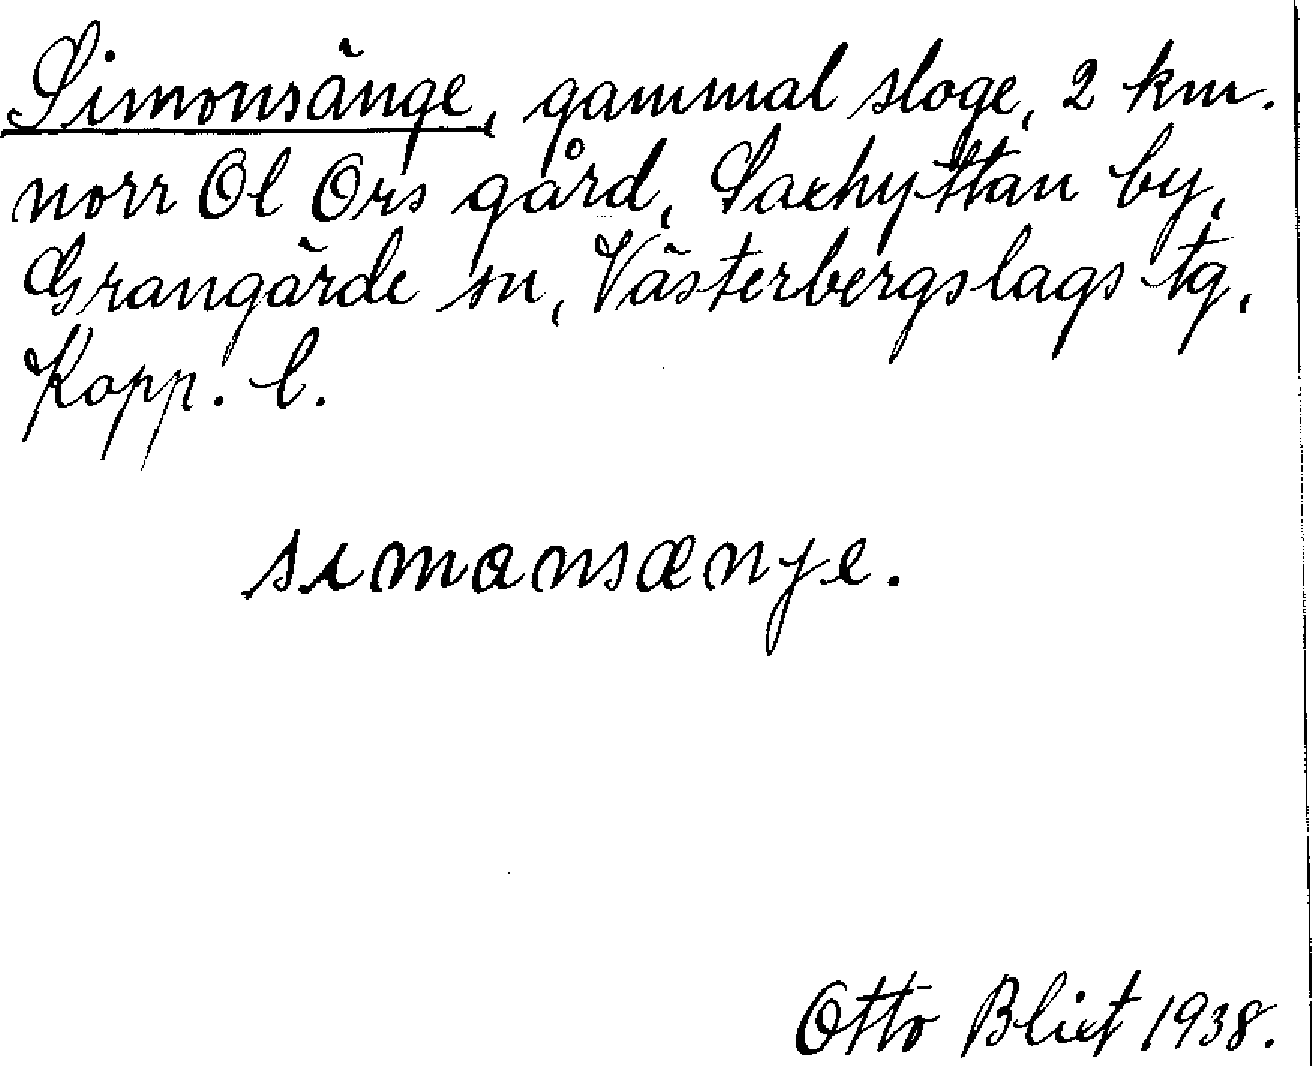 Simonsänge, gammal sloge, 2 km.
norr Ol Ors gård, Saxhyttan by,
Grangärde sn, Västerbergslags tg,
Kopp. l.
simonsænje.
Otto Blixt 1938.